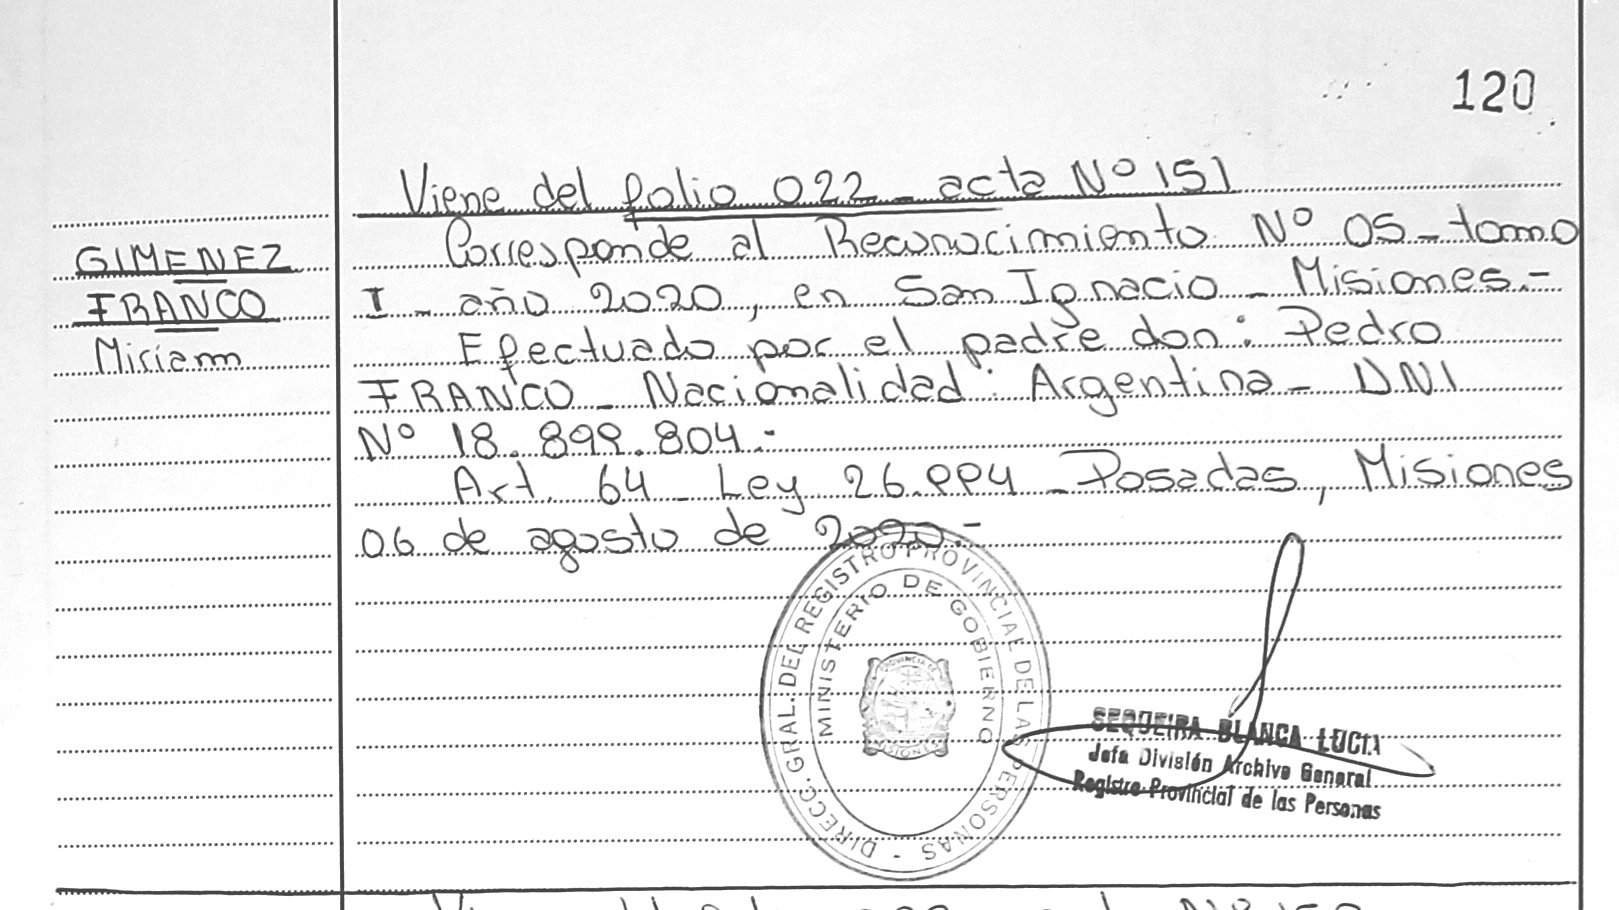 120
Viene del folio 022 - acta Nº 151
GIMENEZ
FRANCO
Miriam
Corresponde al Reconocimiento Nº 05 - tomo
I - año 2020, en San Ignacio - Misiones.-
Efectuado por el padre don: Pedro
FRANCO - Nacionalidad: Argentina - DNI
Nº 18.899.804.-
Art. 64 - Ley 26.994 - Posadas, Misiones
06 de agosto de 2020.-
DIRECC. GRAL. DEL REGISTRO PROVINCIAL DE LAS PERSONAS -
MINISTERIO DE GOBIERNO
PROVINCIA DE
MISIONES
SEQUEIRA BLANCA LUCIA
Jefa División Archivo General
Registro Provincial de las Personas